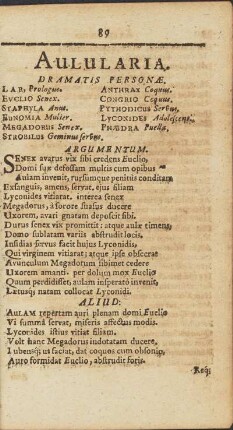 89
AULULARIA.
DRAMATIS PERSONÆ.
LAR, Prologus. ANTHRAX Coquus.
EUCLIO Senex. CONGRIO Coquus.
STAPHYLA Anus. PYTHODICUS Servus.
EUNOMIA Mulier. LYCONIDES Adolescens.
MEGADORUS Senex. PHÆDRA Puella.
STROBILUS Geminus servus.
ARGUMENTUM.
SENEX avarus vix sibi credens Euclio,
Domi suæ defossam multis cum opibus
Aulam invenit, rursumque penitus conditam
Exsanguis, amens, servat. ejus filiam
Lyconides vitiarat. interea senex
Megadorus, à sorore suasus ducere
Uxorem, avari gnatam deposcit sibi.
Durus senex vix promittit: atque aulæ timens,
Domo sublatam variis abstrudit locis.
Insidias servus facit hujus Lyconidis,
Qui virginem vitiarat; atque ipse obsecrat
Avunculum Megadorum sibimet cedere
Uxorem amanti. per dolum mox Euclio
Quum perdidisset, aulam insperatò invenit,
Lætusq; natam collocat Lyconidi.
ALIUD:
AULAM repertam auri plenam domi Euclio
Vi summâ servat, miseris affectus modis.
Lyconides istius vitiat filiam.
Volt hanc Megadorus indotatam ducere,
Lubensq; ut faciat, dat coquos cum obsonio,
Auro formidat Euclio, abstrudit foris.
Req;